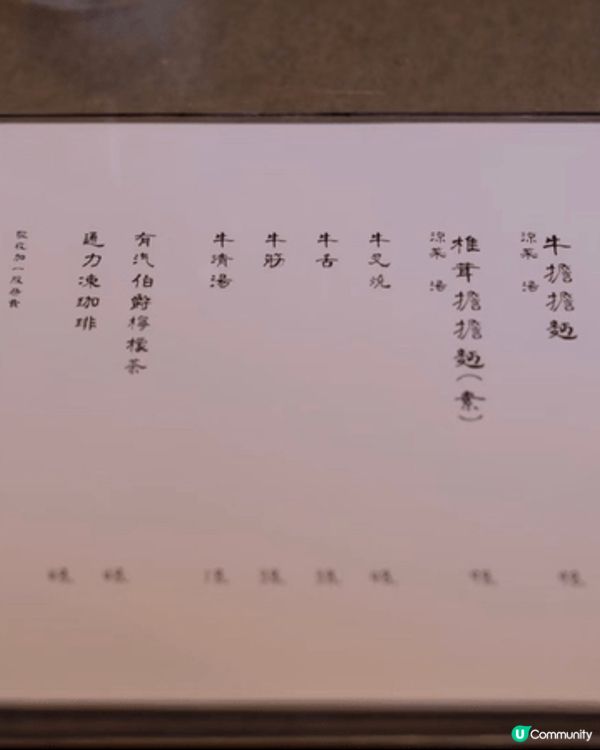 牛擔擔麵
涼菜 湯
椎茸擔擔麵(素)
涼菜 湯
牛叉燒
牛舌
牛筋
牛清湯
有汽伯爵檸檬茶
通力凍珈琲
敬收加一服務費
U Community